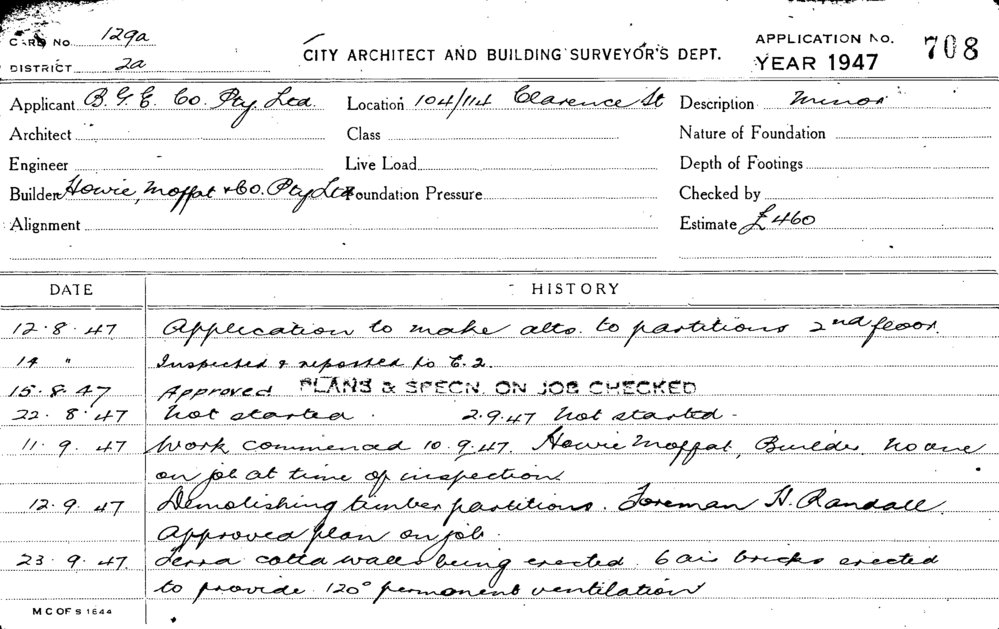 CARD No. 129a
DISTRICT 2a
CITY ARCHITECT AND BUILDING SURVEYOR'S DEPT.
APPLICATION No. 708
YEAR 1947
Applicant B.G.E. Co. Pty. Ltd. Location 104/114 Clarence St Description Minor
Architect Class Nature of Foundation
Engineer - Live Load Depth of Footings
Builder Howie, Moffat & Co. Pty Ltd Foundation Pressure Checked by
Alignment Estimate £460
DATE HISTORY
12.8.47 Application to make alts. to partitions 2nd floor.
14 " Inspected & reported to C.2.
15.8.47 Approved PLANS & SPECN. ON JOB CHECKED
22.8.47 Not started. 2.9.47 Not started -
11.9.47 Work commenced 10.9.47. Howie Moffat, Builder. No one
on job at time of inspection.
12.9.47 Demolishing timber partitions. Foreman H. Randall
Approved plan on job.
23.9.47. Terra cotta walls being erected. 6 air bricks erected
to provide 120° permanent ventilation
M C OF S 1644